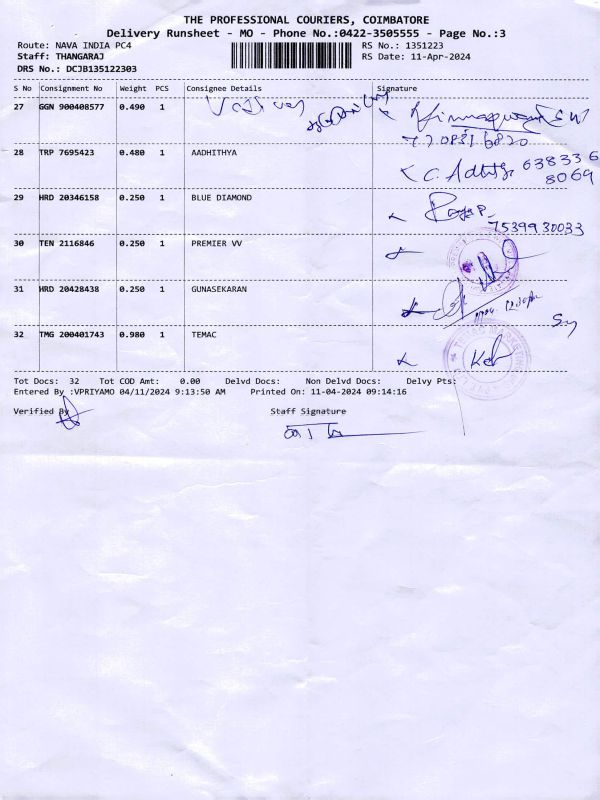 THE PROFESSIONAL COURIERS, COIMBATORE
Delivery Runsheet - MO - Phone No.:0422-3505555 - Page No.:3
Route: NAVA INDIA PC4 RS No.: 1351223
Staff: THANGARAJ RS Date: 11-Apr-2024
DRS No.: DCJB135122303
S No Consignment No Weight PCS Consignee Details Signature
27 GGN 900408577 0.490 1
28 TRP 7695423 0.480 1 AADHITHYA
638336
8069
29 HRD 20346158 0.250 1 BLUE DIAMOND
7539930033
30 TEN 2116846 0.250 1 PREMIER VV
31 HRD 20428438 0.250 1 GUNASEKARAN
32 TMG 200401743 0.980 1 TEMAC
Tot Docs: 32 Tot COD Amt: 0.00 Delvd Docs: Non Delvd Docs: Delvy Pts:
Entered By :VPRIYAMO 04/11/2024 9:13:50 AM Printed On: 11-04-2024 09:14:16
Verified By Staff Signature